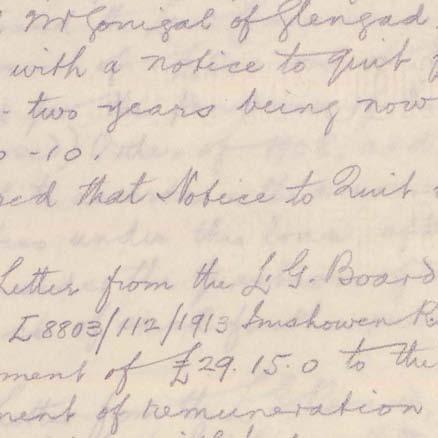 McGonigal of Glengad
with a notice to quit
two years being now
0-10.
ed that Notice to Quit
Letter from the L. G. Board
I 8803/112/1913 Inishowen R
ment of £29. 15. 0 to the
ment of remuneration